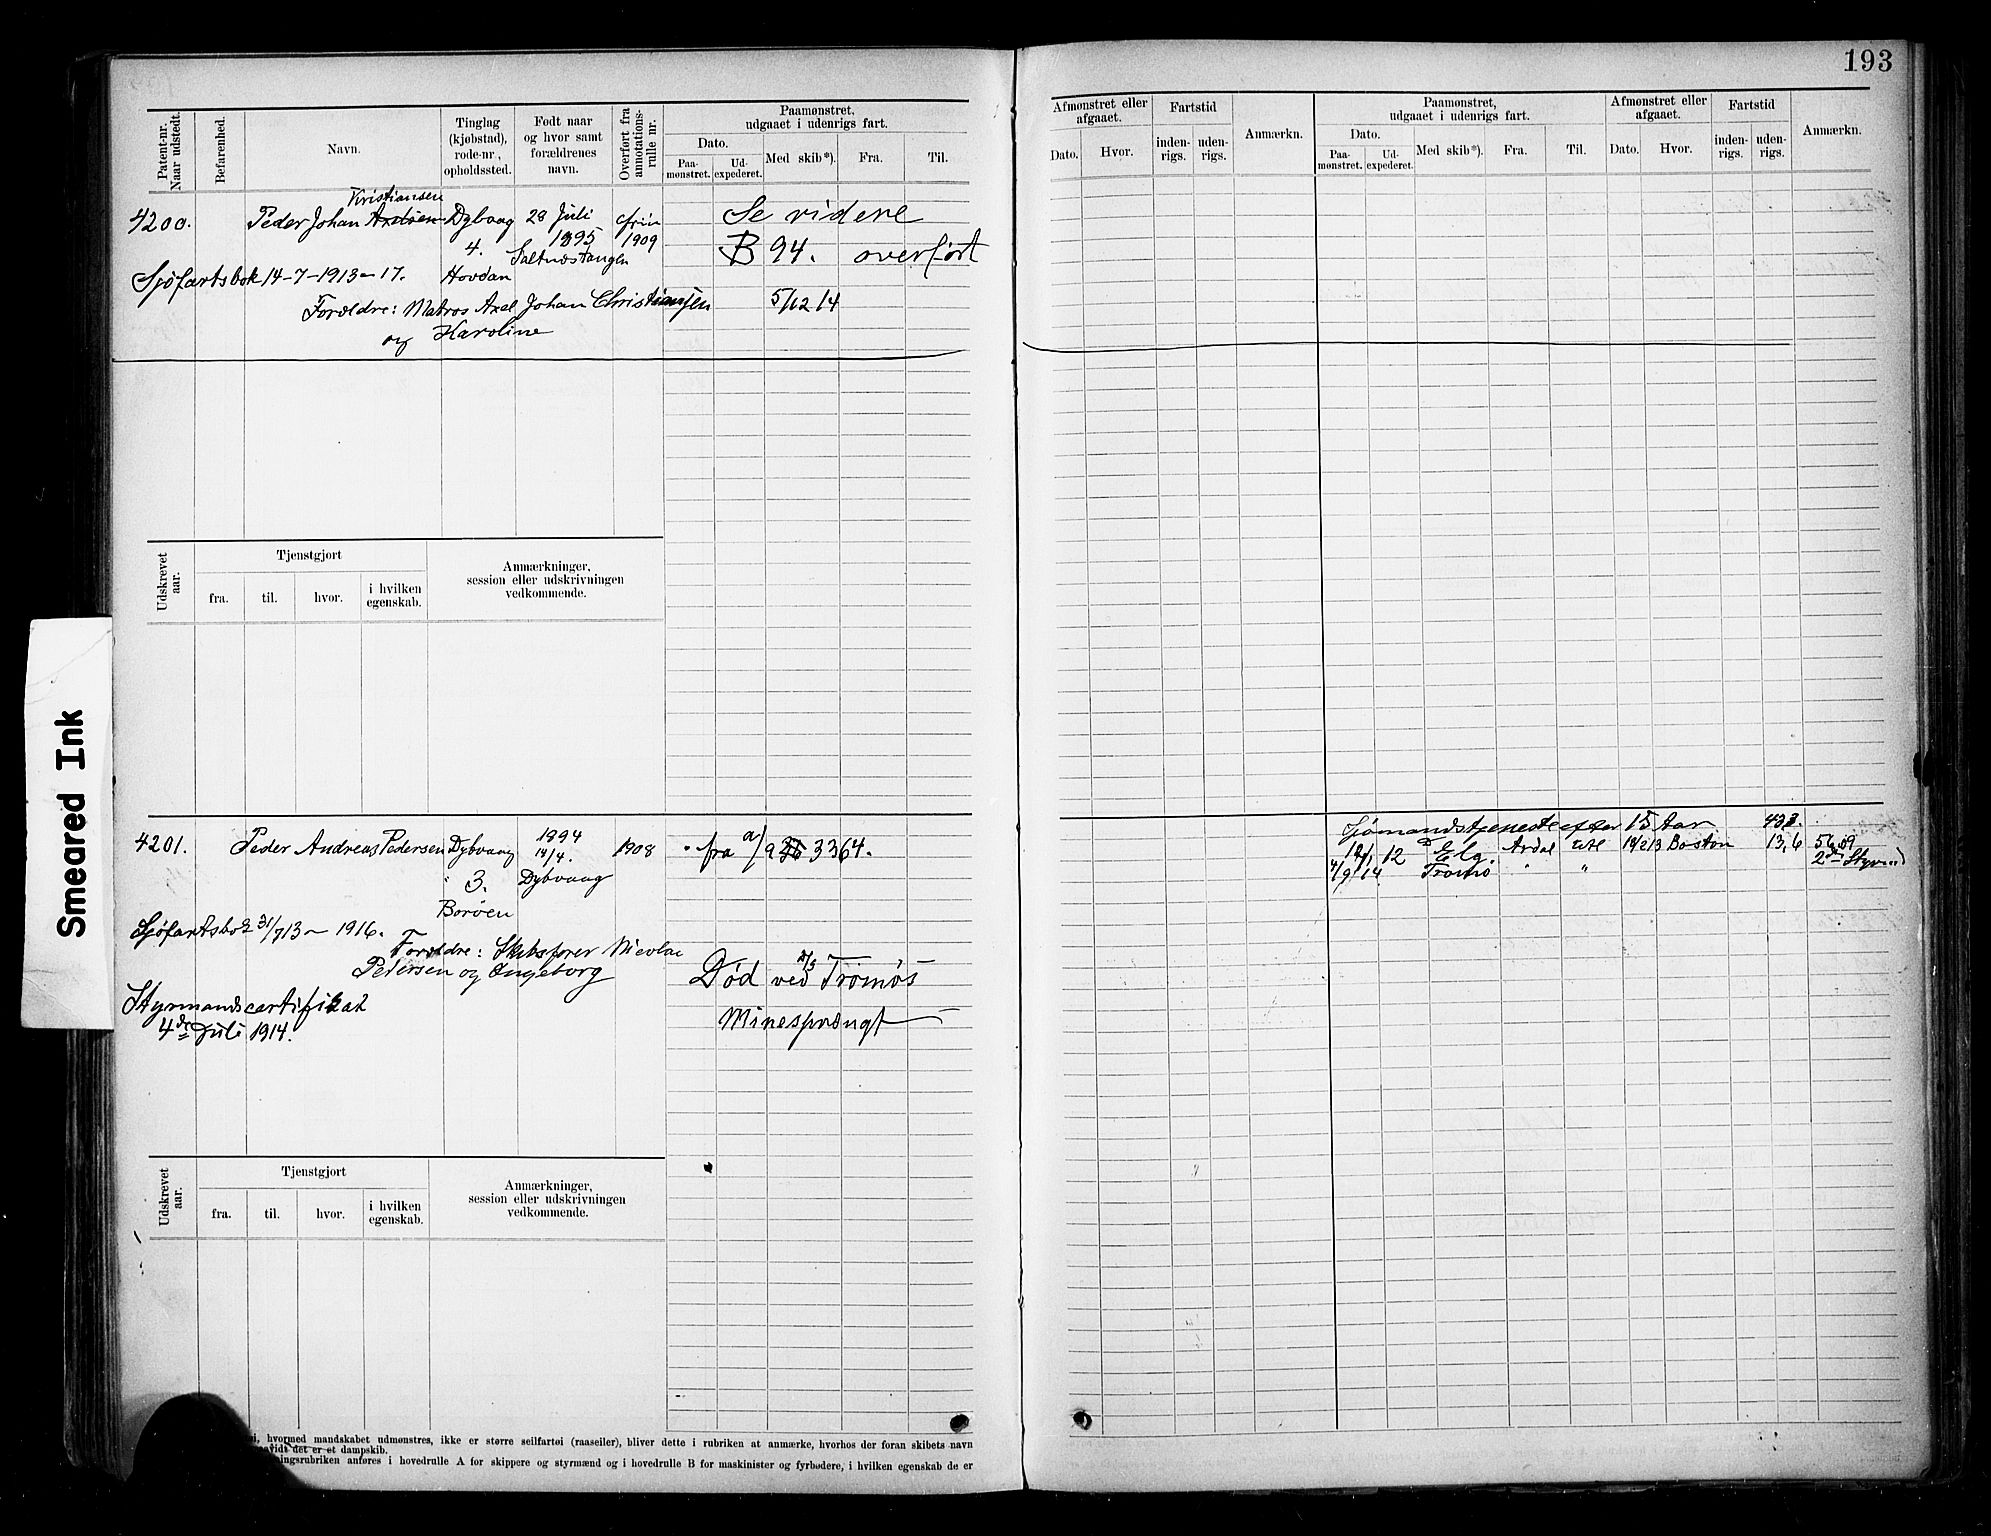 193
Patent-nr. Naar udstedt.
Befarenhed.
Navn.
Tinglag (kjøbstad), rode-nr, opholdssted.
Født naar og hvor samt forældrenes navn.
Overført fra annotations-rulle nr.
Paamønstret, udgaaet i udenrigs fart.
Dato.
Paa-mønstret.
Ud-expederet.
Med skib*).
Fra.
Til.
Afmønstret eller afgaaet.
Dato.
Hvor.
Fartstid
inden-rigs.
uden-rigs.
Anmærkn.
Paamønstret, udgaaet i udenrigs fart.
Dato.
Paa-mønstret.
Ud-expederet.
Med skib*).
Fra.
Til.
Afmønstret eller afgaaet.
Dato.
Hvor.
Fartstid
inden-rigs.
uden-rigs.
Anmærkn.
Kristiansen
4200. Peder Johan Axelsen Dybvaag 28 Juli
4. 1895 1909
Saltnæstangen
Se videre
B 94. overført
Sjøfartsbok 14-7-1913-17. Hovdan
Forældre: Matros Axel Johan Christiansen 5/12 14
og Karoline
Udskrevet aar.
Tjenstgjort
fra.
til.
hvor.
i hvilken egenskab.
Anmærkninger, session eller udskrivningen vedkommende.
4201. Peder Andreas Pedersen Dybvaag 1894 1908
14/4.
" 3. Dybvaag
Borøen
Sjøfartsbok 31/7 13 - 1916.
Forældre: Skibsfører Nicolai
Pedersen og Ingeborg
Død ved Tromøs
Minesprængt
Styrmandscertifikat
4de Juli 1914.
Sjømandstjeneste efter 15 Aar
12 Elg. Ardal 13 Boston 13,6 56.09
14 Tromø " " 2den Styrmd
Udskrevet aar.
Tjenstgjort
fra.
til.
hvor.
i hvilken egenskab.
Anmærkninger, session eller udskrivningen vedkommende.
hvormed mandskabet udmønstres, ikke er større seilfartøi (raaseiler), bliver dette i rubriken at anmærke, hvorhos der foran skibets navn
det er et dampskib.
ningsrubriken anføres i hovedrulle A for skippere og styrmænd og i hovedrulle B for maskinister og fyrbødere, i hvilken egenskab de er
Smeared Ink